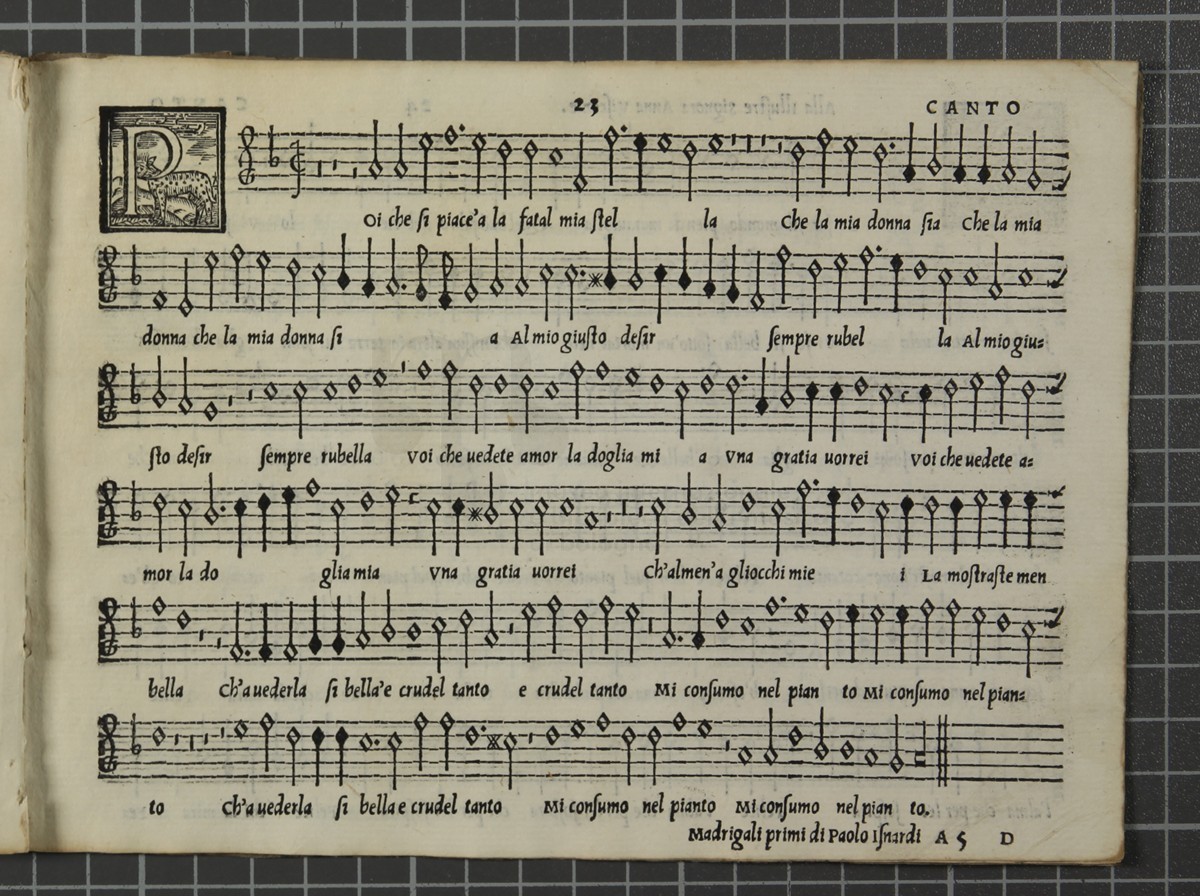 23 CANTO
POi che ſi piace'a la fatal mia ſtel la Che la mia donna ſia Che la mia
donna che la mia donna ſi a Al mio giuſto deſir ſempre rubel la Al mio giu=
ſto deſir ſempre rubella voi che uedete amor la doglia mi a vna gratia uorrei voi che uedete a=
mor la do glia mia vna gratia uorrei Ch'almen'a gliocchi mie i La moſtraſte men
bella Ch'a uederla ſi bella'e crudel tanto e crudel tanto Mi conſumo nel pian to Mi conſumo nel pian=
to Ch'a uederla ſi bella e crudel tanto Mi conſumo nel pianto Mi conſumo nel pian to.
Madrigali primi di Paolo Iſnardi A 5 D